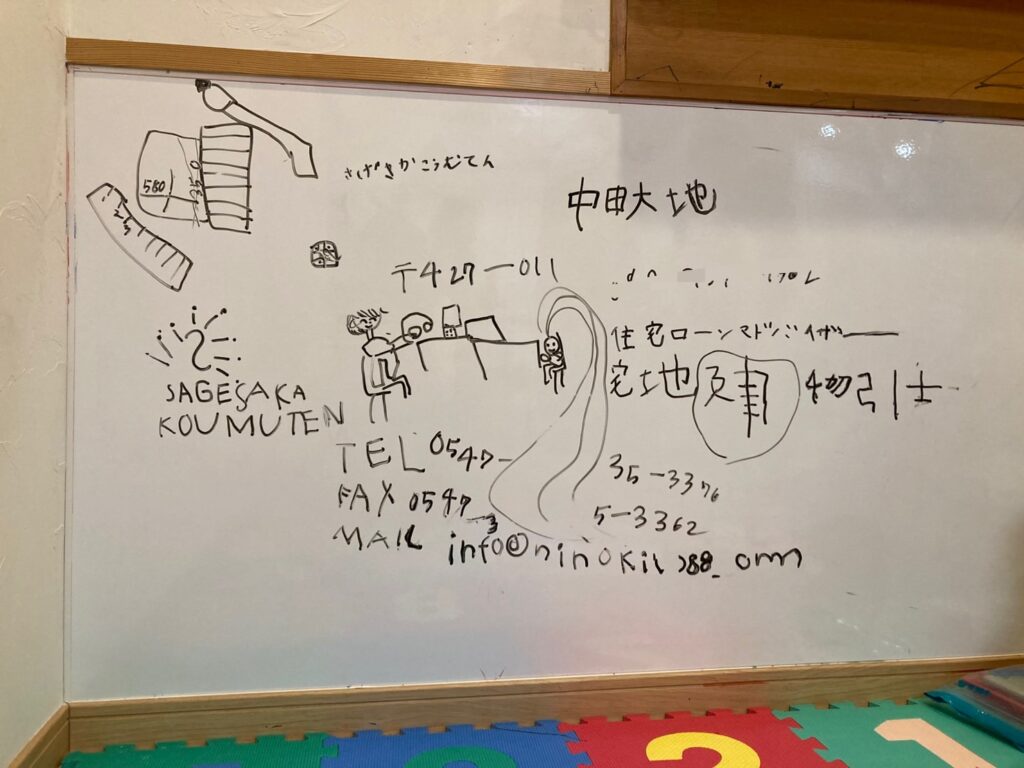 580
さげさかこうむてん
中田大地
〒427-011
住宅ローンアドバイザー
宅地建物引士
SAGESAKA
KOUMUTEN
TEL 0547-35-3376
FAX 0547-35-3362
MAIL info@ninokil
2
1